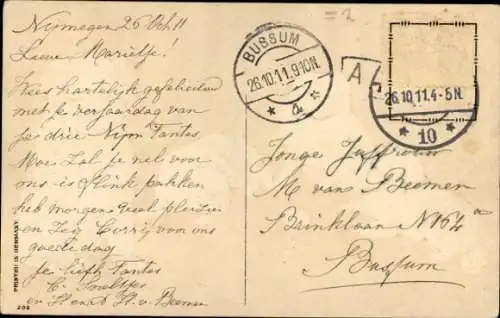 Nijmegen 26 Oct 11
Lieve Marietje!
Wees hartelijk gefeliciteerd
met je verjaardag van
je drie Nijm Tantes
Moe zal je wel voor
ons flink pakken
heb morgen veel plezier
en zeg Corrij voor ons
goede dag
Je liefh Tantes
en v. Beemen
BUSSUM
26.10.11.9-10N.
A
26.10.11.4-5N.
10
Jonge Juffrouw
M van Beemen
Brinklaan No 164
Bussum
PRINTED IN GERMANY